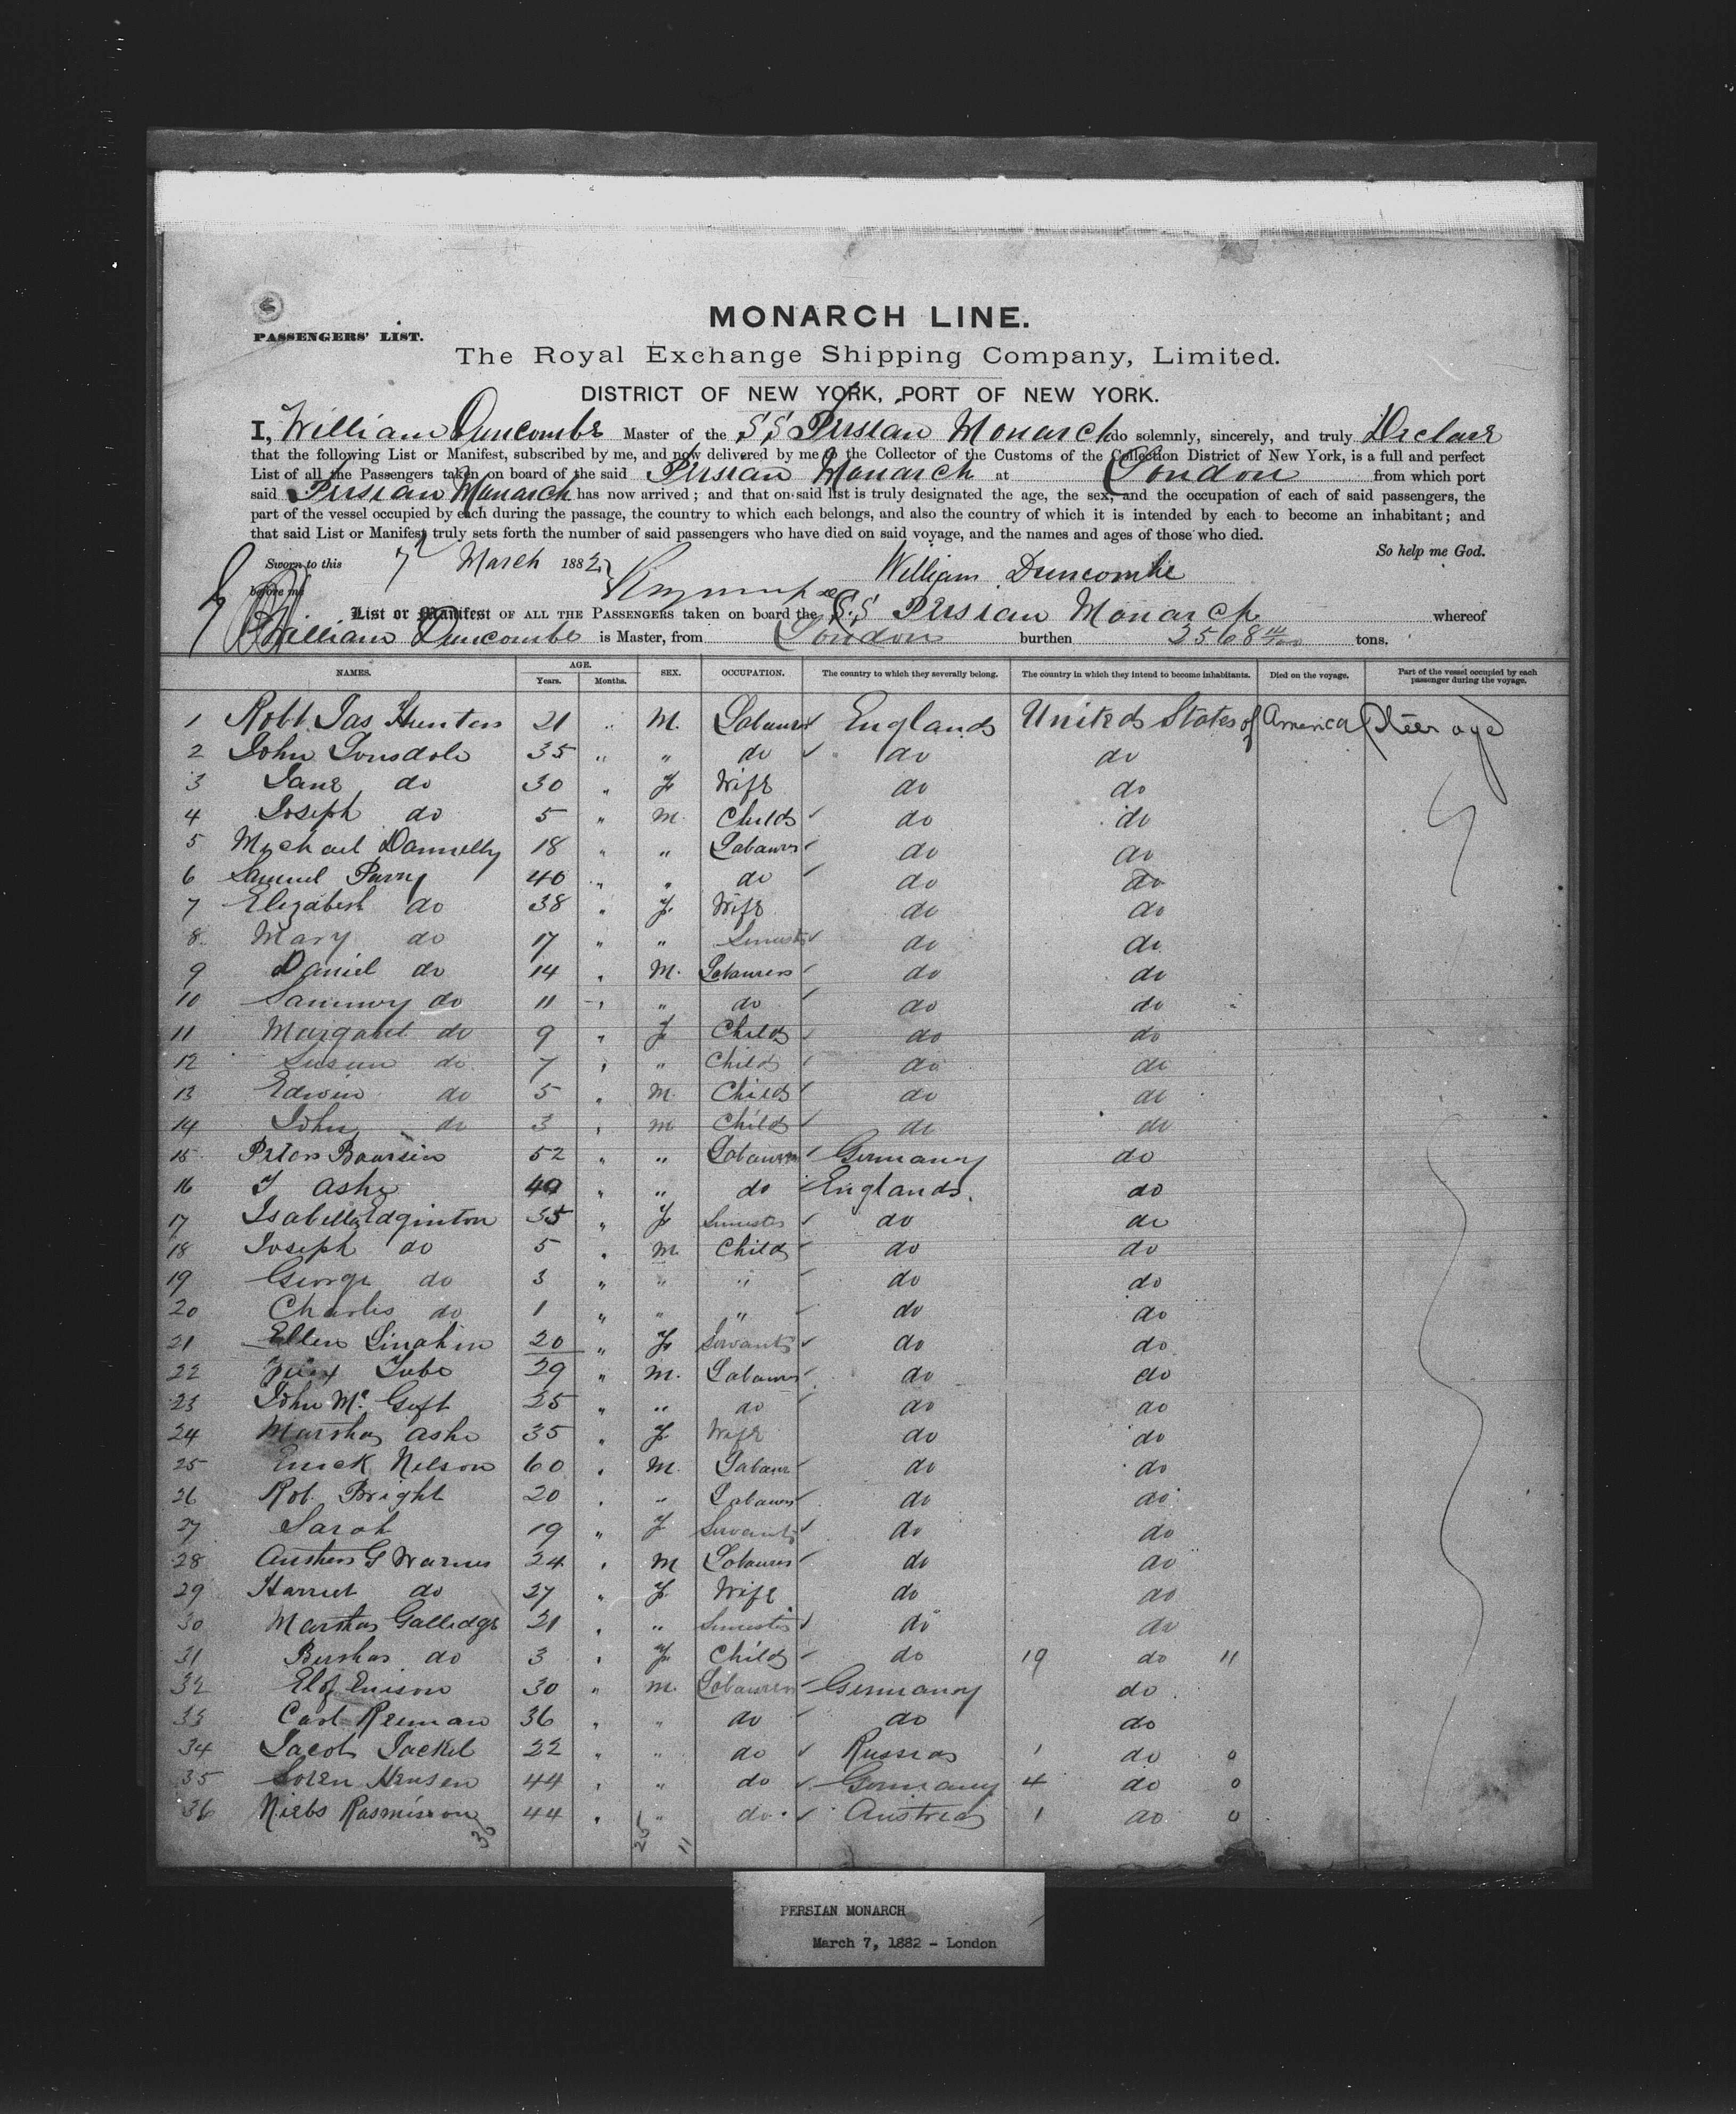 MONARCH LINE.
PASSENGERS' LIST.
The Royal Exchange Shipping Company, Limited.
DISTRICT OF NEW YORK, PORT OF NEW YORK.
I, William Duncombe Master of the S.S Persian Monarch do solemnly, sincerely, and truly Declare
that the following List or Manifest, subscribed by me, and now delivered by me to the Collector of the Customs of the Collection District of New York, is a full and perfect
List of all the Passengers taken on board of the said Persian Monarch at London from which port
said Persian Monarch has now arrived; and that on said list is truly designated the age, the sex, and the occupation of each of said passengers, the
part of the vessel occupied by each during the passage, the country to which each belongs, and also the country of which it is intended by each to become an inhabitant; and
that said List or Manifest truly sets forth the number of said passengers who have died on said voyage, and the names and ages of those who died.
So help me God.
Sworn to this 7 March 1882 William Duncombe
before me
List or Manifest OF ALL THE PASSENGERS taken on board the S.S Persian Monarch whereof
William Duncombe is Master, from London burthen 2568 tons.
NAMES. AGE. Years. Months. SEX. OCCUPATION. The country to which they severally belong. The country in which they intend to become inhabitants. Died on the voyage. Part of the vessel occupied by each passenger during the voyage.
1 Robt. Jas Hunter 21 " M. Labourer England United States of America Steerage
2 John Lonsdale 35 " " do do do
3 Jane do 30 " F Wife do do
4 Joseph do 5 " M. Child do do
5 Michael Dannelly 18 " " Labourer do do
6 Samuel Parry 40 " " do do do
7 Elizabeth do 38 " F. Wife do do
8 Mary do 17 " " do do
9 Daniel do 14 " M. Labourer do do
10 Sammy do 11 " " do do do
11 Margaret do 9 " F Child do do
12 Susan do 7 " " Child do do
13 Edwin do 5 " M. Child do do
14 John do 3 " M Child do do
15 52 " " Labourer Germany do
16 Ashe " " do England. do
17 Isabella Edginton 35 " F do do
18 Joseph do 5 " M. Child do do
19 George do 3 " " " do do
20 Charles do 1 " " " do do
21 Ellen 20 " F Servant do do
22 29 " M. Labourer do do
23 John Mc 25 " " do do do
24 Martha Ashe 35 " F. Wife do do
25 Nelson 60 " M. Labourer do do
26 Rob. Bright 20 " " Labourer do do
27 Sarah 19 " F Servant do do
28 G Warner 24 " M Labourer do do
29 Harriet do 27 " F. Wife do do
30 Martha 21 " " do do
31 do 3 " F Child do 19 do 11
32 30 " M. Labourer Germany do
33 Carl 36 " " do do do
34 Jacob Jackel 22 " " do Russia 1 do 0
35 Soren Hensen 44 " " do Germany 4 do 0
36 44 " " do Austria 1 do 0
36 25 11
PERSIAN MONARCH
March 7, 1882 - London